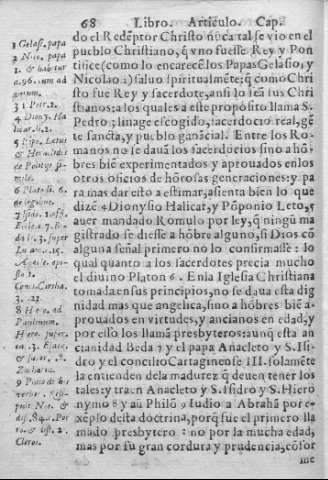 68 Libro. Artículo. Cap.
do el Redẽptor Christo nũca tal se vio en el
pueblo Christiano, q̃ vno fuesse Rey y Pon
tifice (como lo encarecẽ los Papas Gelasio, y
Nicolao 1) saluo spiritualmẽte; q̃ como Chri
sto fue Rey y sacerdote, ansi lo seã sus Chri
stianos: a los quales a este proposito llama S.
Pedro 3 linage escogido, sacerdocio real, gẽ
te sancta, y pueblo ganãcial. Entre los Ro-
manos no se dauã los sacerdocios sino a hõ-
bres biẽ experimentados y aprouados en los
otros oficios de hõrosas generaciones: y pa
ra mas dar esto a estimar, asienta bien lo que
dizẽ 4 Dionysio Halicar, y Põponio Leto, 5
auer mandado Romulo por ley, q̃ ningũ ma
gistrado se diesse a hõbre alguno, si Dios cõ
alguna señal primero no lo confirmasse: lo
qual quanto a los sacerdotes precia mucho
el diuino Platon 6. En la Iglesia Christiana
tomada en sus principios, no se daua esta dig
nidad mas que angelica, sino a hõbres biẽ a-
prouados en virtudes, y ancianos en edad, y
por esso los llamã presbyteros: aunq̃ esta an
cianidad Beda 7 y el papa Anacleto y S. Isi-
dro y el concilio Cartaginense III. solamẽte
la entienden de la madurez q̃ deuen tener los
tales: y traen Anacleto y S. Isidro y S. Hiero
nymo 8 y aũ Philõ 9 Iudio a Abrahã por e-
xẽplo desta doctrina, porq̃ fue el primero lla
mado presbytero: no por la mucha edad,
mas por su gran cordura y prudencia, cõfor
me
1 Gelas. papa
2 Nico. papa
& habetur
3 1 Petr. 2.
4 Diony. Ha
6 Plato li. 6.
de legibus.
3. 22.
8 Hero. ad
Zacharia.
Cleri.